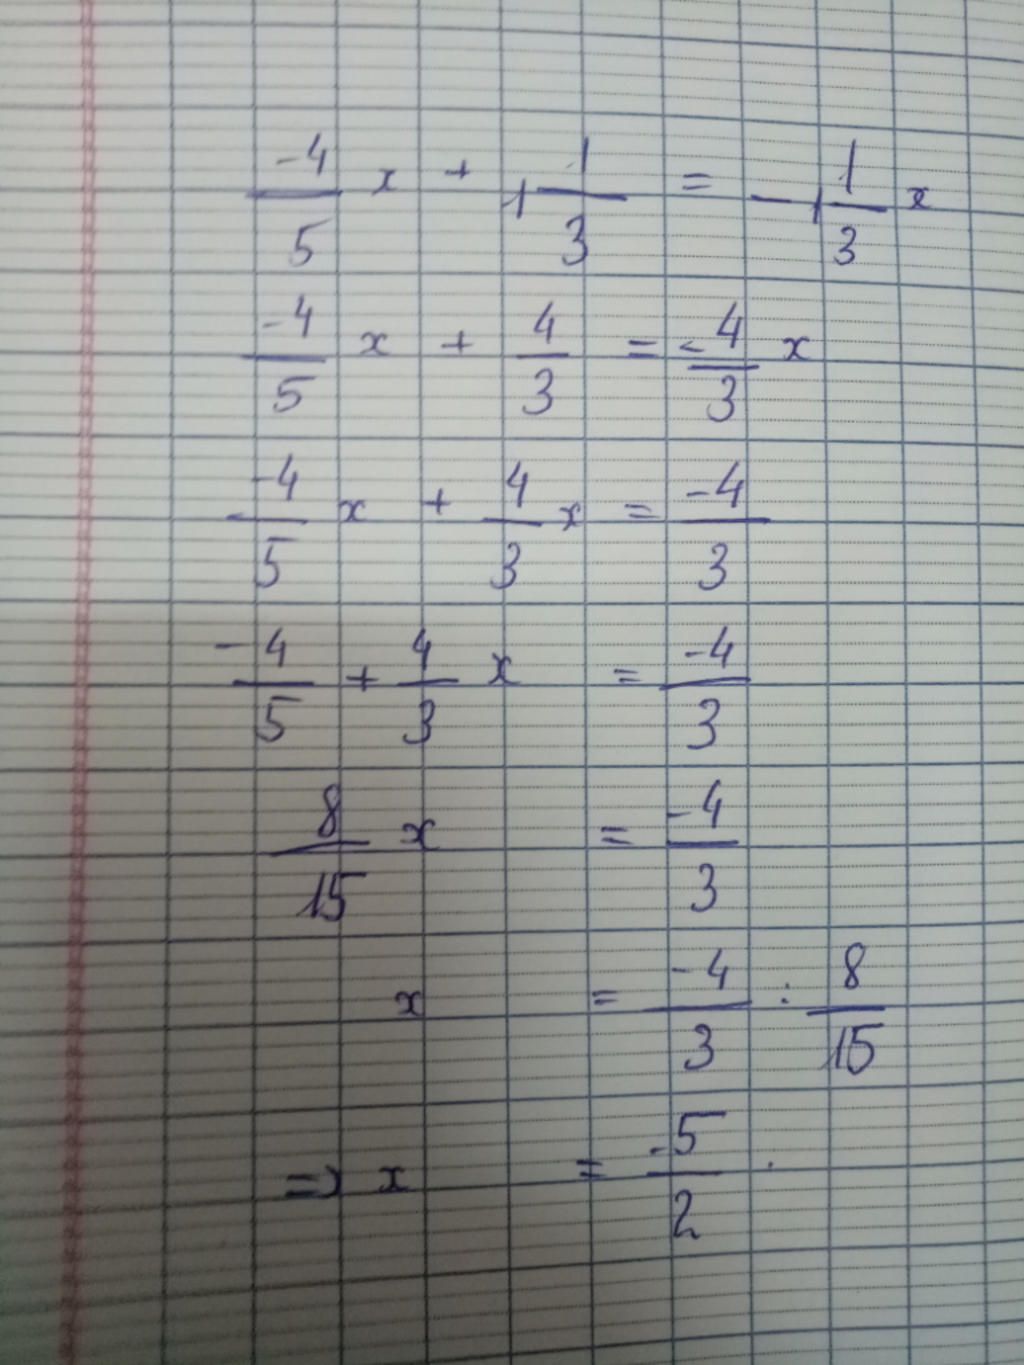 -4/5 x + 1 1/3 = - 1 1/3 x
-4/5 x + 4/3 = -4/3 x
-4/5 x + 4/3 x = -4/3
-4/5 + 4/3 x = -4/3
8/15 x = -4/3
x = -4/3 : 8/15
=> x = -5/2 .